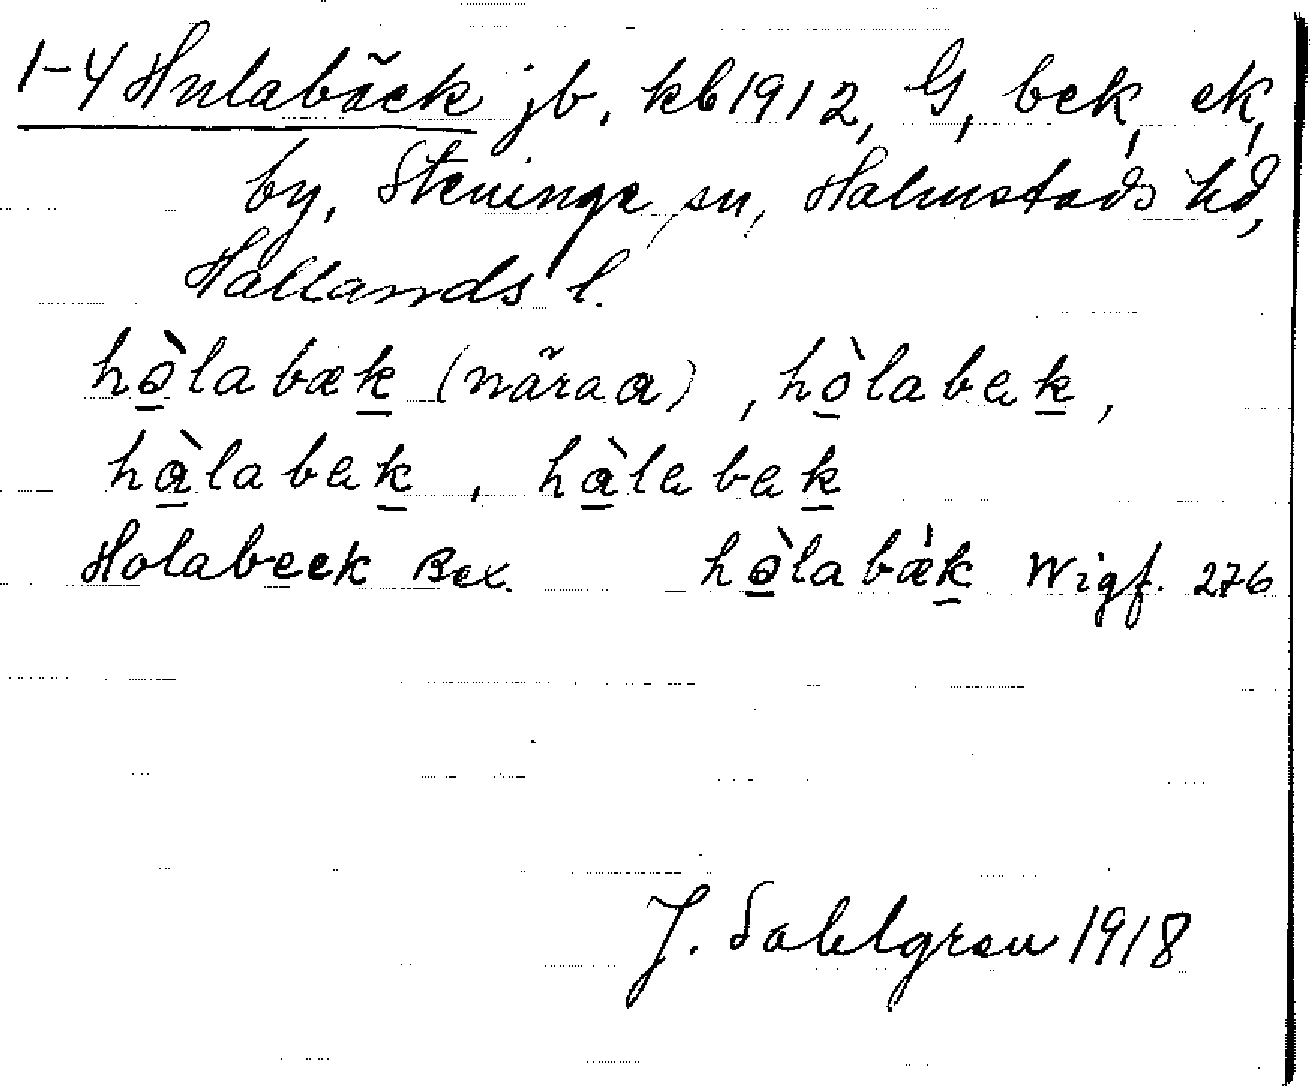 1-4 Hulabäck jb, kb 1912, G, bek, ek,
by, Steninge sn, Halmstads hd,
Hallands l.
hòlabæk (nära a), hòlabak,
hàlabak, hàlabak
Holabeek Bex. hòlabæ̀k Wigf. 276
J. Sahlgren 1918